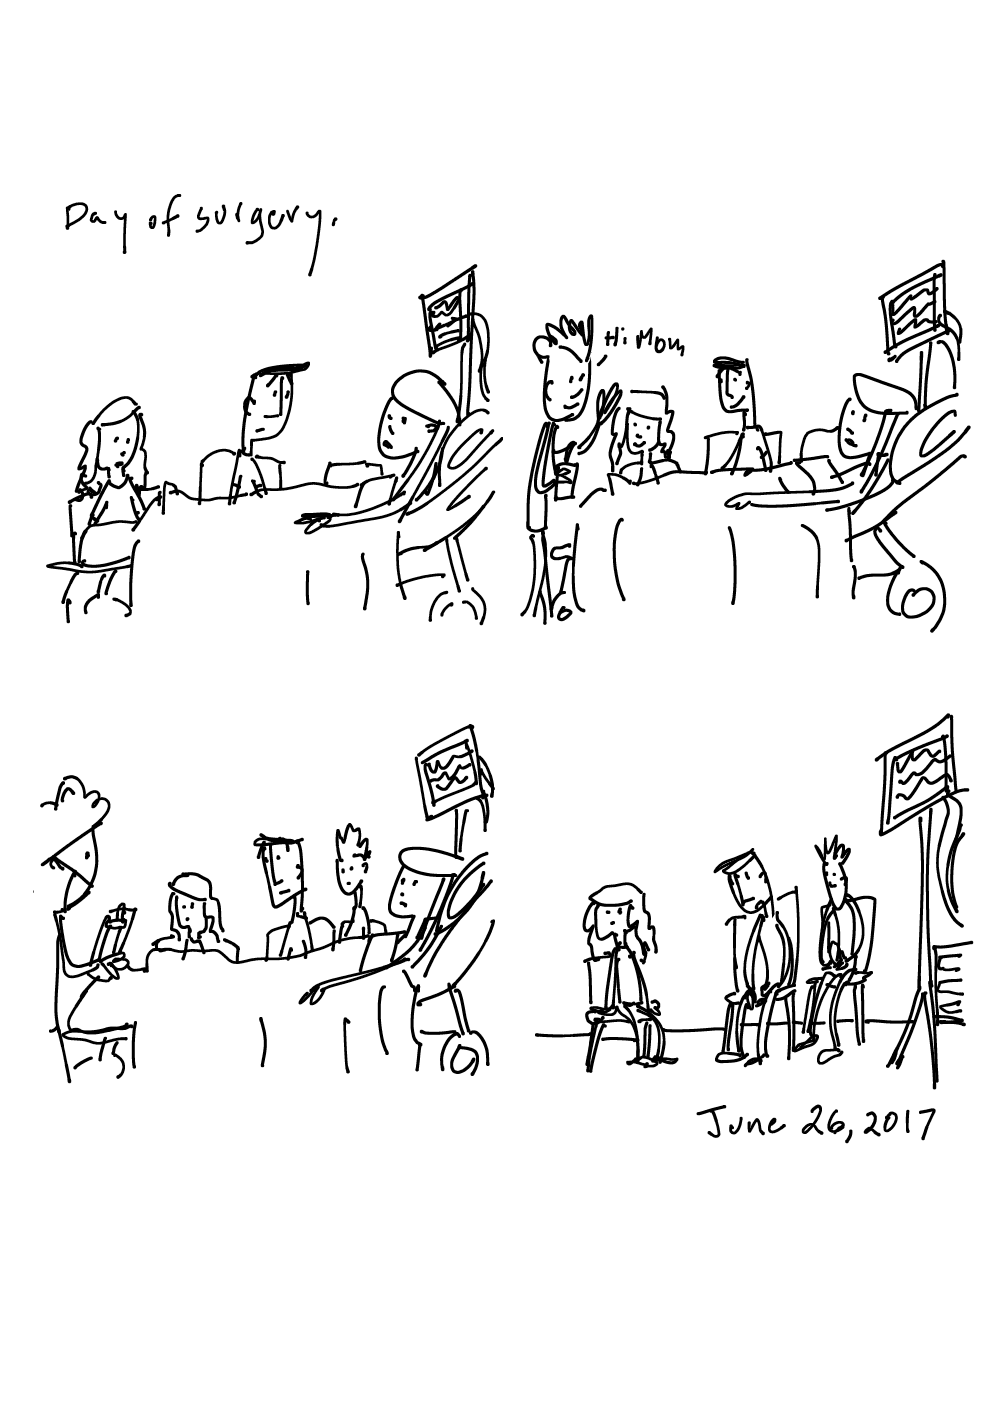 Day of surgery.
Hi Mom
June 26, 2017